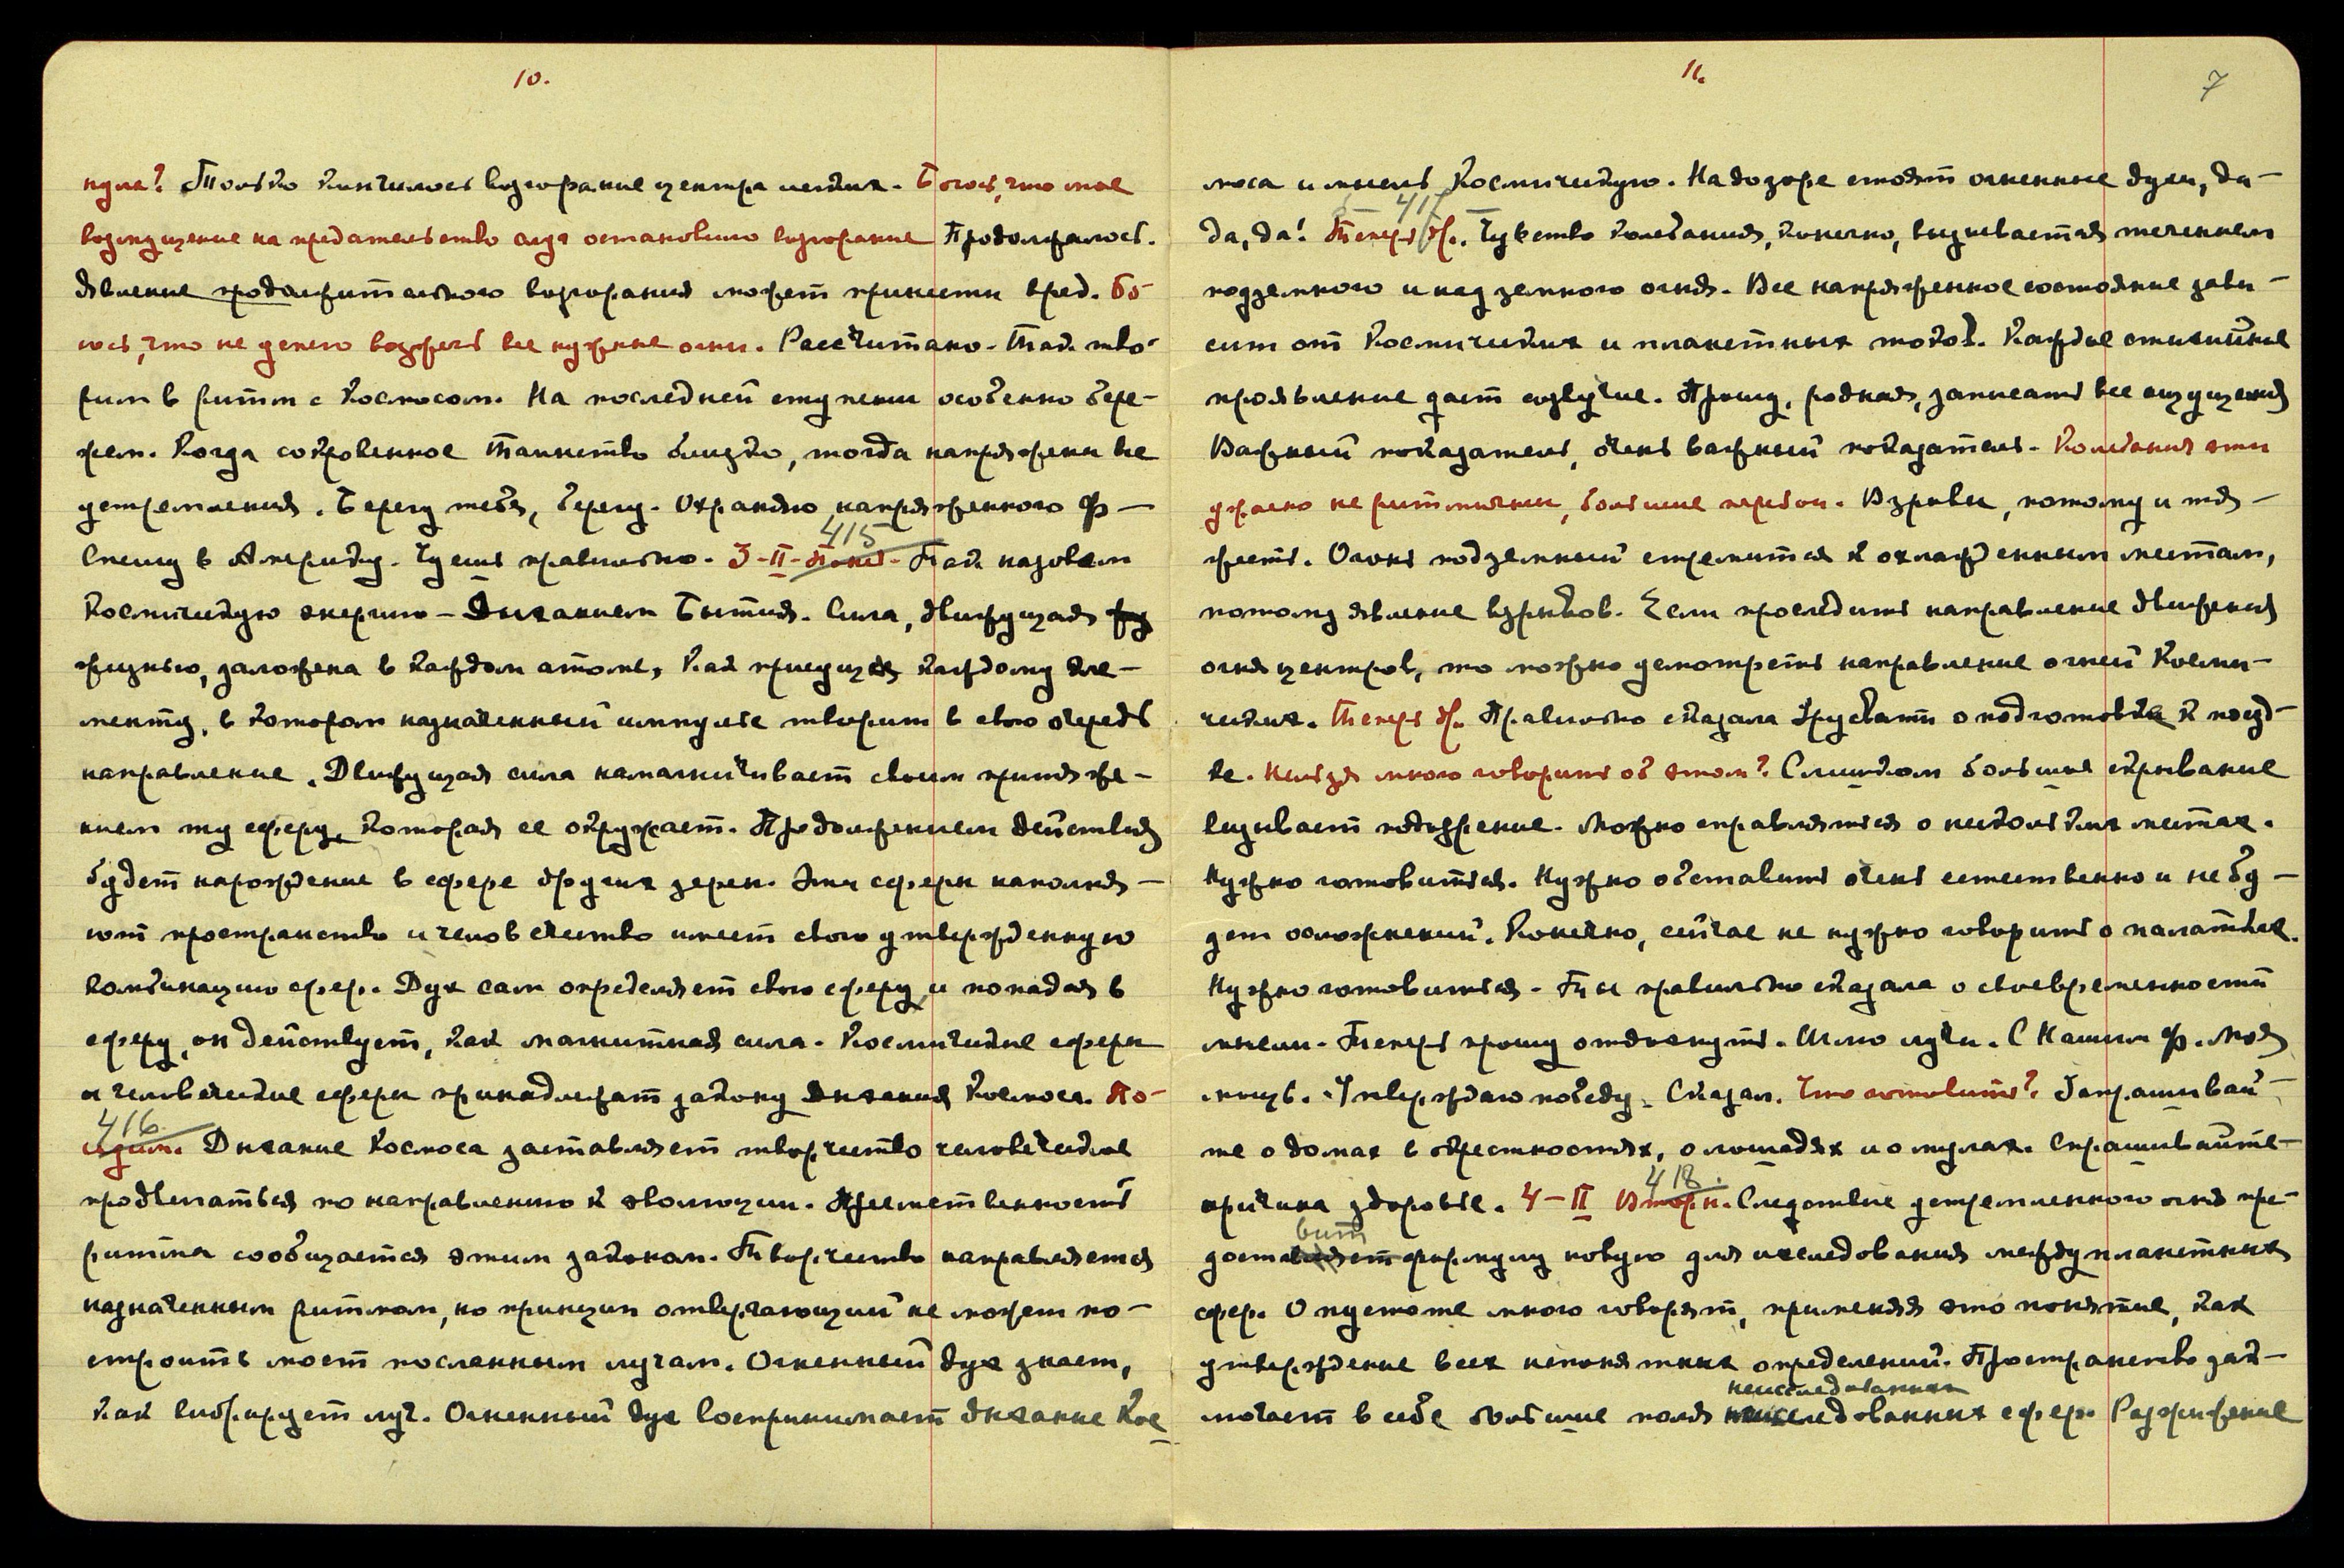 10.
нула? Только кончилось возгорание центра легких. Боюсь, что мое
возмущение на предательство  остановило возгорание Продолжалось.
Явление продолжительного возгорания может принести вред. Бо-
юсь, что не успею возжечь все нужные огни. Рассчитано. Так тво-
рим в ритм с Космосом. На последней ступени особенно бере-
жем. Когда сокровенное таинство близко, тогда напряжены все
устремления. Берегу тебя, берегу. Охраняю напряженного Ф —
415
Спешу в Америку. Чуешь правильно. 3-II- Так назовем
Космическую энергию — Дыханием Бытия. Сила, движущая
жизнью, заложена в каждом атоме, как присуща каждому эле-
менту, в котором назначенный импульс творит в свою очередь
направление. Движущая сила намагничивает своим притяже-
нием ту сферу, которая ее окружает. Продолжением действия
будет нарождение в сфере других зерен. Эти сферы наполня-
ют пространство и человечество имеет свою утвержденную
комбинацию сфер. Дух сам определяет свою сферу и попадая в
сферу, он действует, как магнитная сила. Космические сферы
и человеческие сферы принадлежат закону дыхания Космоса. По-
416.
сидим. Дыхание Космоса заставляет творчество человеческое
продвигаться по направлению к эволюции. Преемственность
ритма сообщается этим законом. Творчество направляется
назначенным ритмом, но принцип отвергающий не может по-
строить мост посланным лучам. Огненный дух знает,
как вибрирует луч. Огненный дух воспринимает дыхание Кос
11.
7
моса и мысль Космическую. На дозоре стоят огненные духи, да-
417
да, да! Теперь др. Чувство колебания, конечно, вызывается течением
подземного и надземного огня. Все напряженное состояние зави-
сит от Космических и планетных токов. Каждое стихийное
проявление дает созвучие. Прошу, родная, записать все ощущения
Важный показатель, очень важный показатель. Колебания эти
ужасно не ритмичны, большие перебои. Взрывы, потому и тя-
жесть. Огонь подземный стремится к охлажденным местам,
потому явление взрывов. Если проследить направление движения
огня центров, то можно усмотреть направление огней Косми-
ческих. Теперь др. Правильно сказала Урусвати о подготовке к поезд-
ке. Нельзя много говорить об этом? Слишком большое скрывание
вызывает подозрение. Можно справляться о нескольких местах.
Нужно готовиться. Нужно обставить очень естественно и не бу-
дет осложнений. Конечно, сейчас не нужно говорить о палатках.
Нужно готовиться. Ты правильно сказала о своевременности
мысли. Теперь прошу отдохнуть. Шлю лучи. С Нашим Ф. моя
мощь. Утверждаю победу. Сказал. Что готовить? Запрашивай-
те о домах в окрестностях, о лошадях и о мулах. Спрашивайте-
418.
причина здоровье. 4-II Вторн. Следствие устремленного огня пре-
вит
доставляет формулу новую для исследования междупланетных
сфер. О пустоте много говорят, применяя это понятие, как
утверждение всех непонятных определений. Пространство зак-
неисследованных
лючает в себе большие поля  сфер. Разжижение